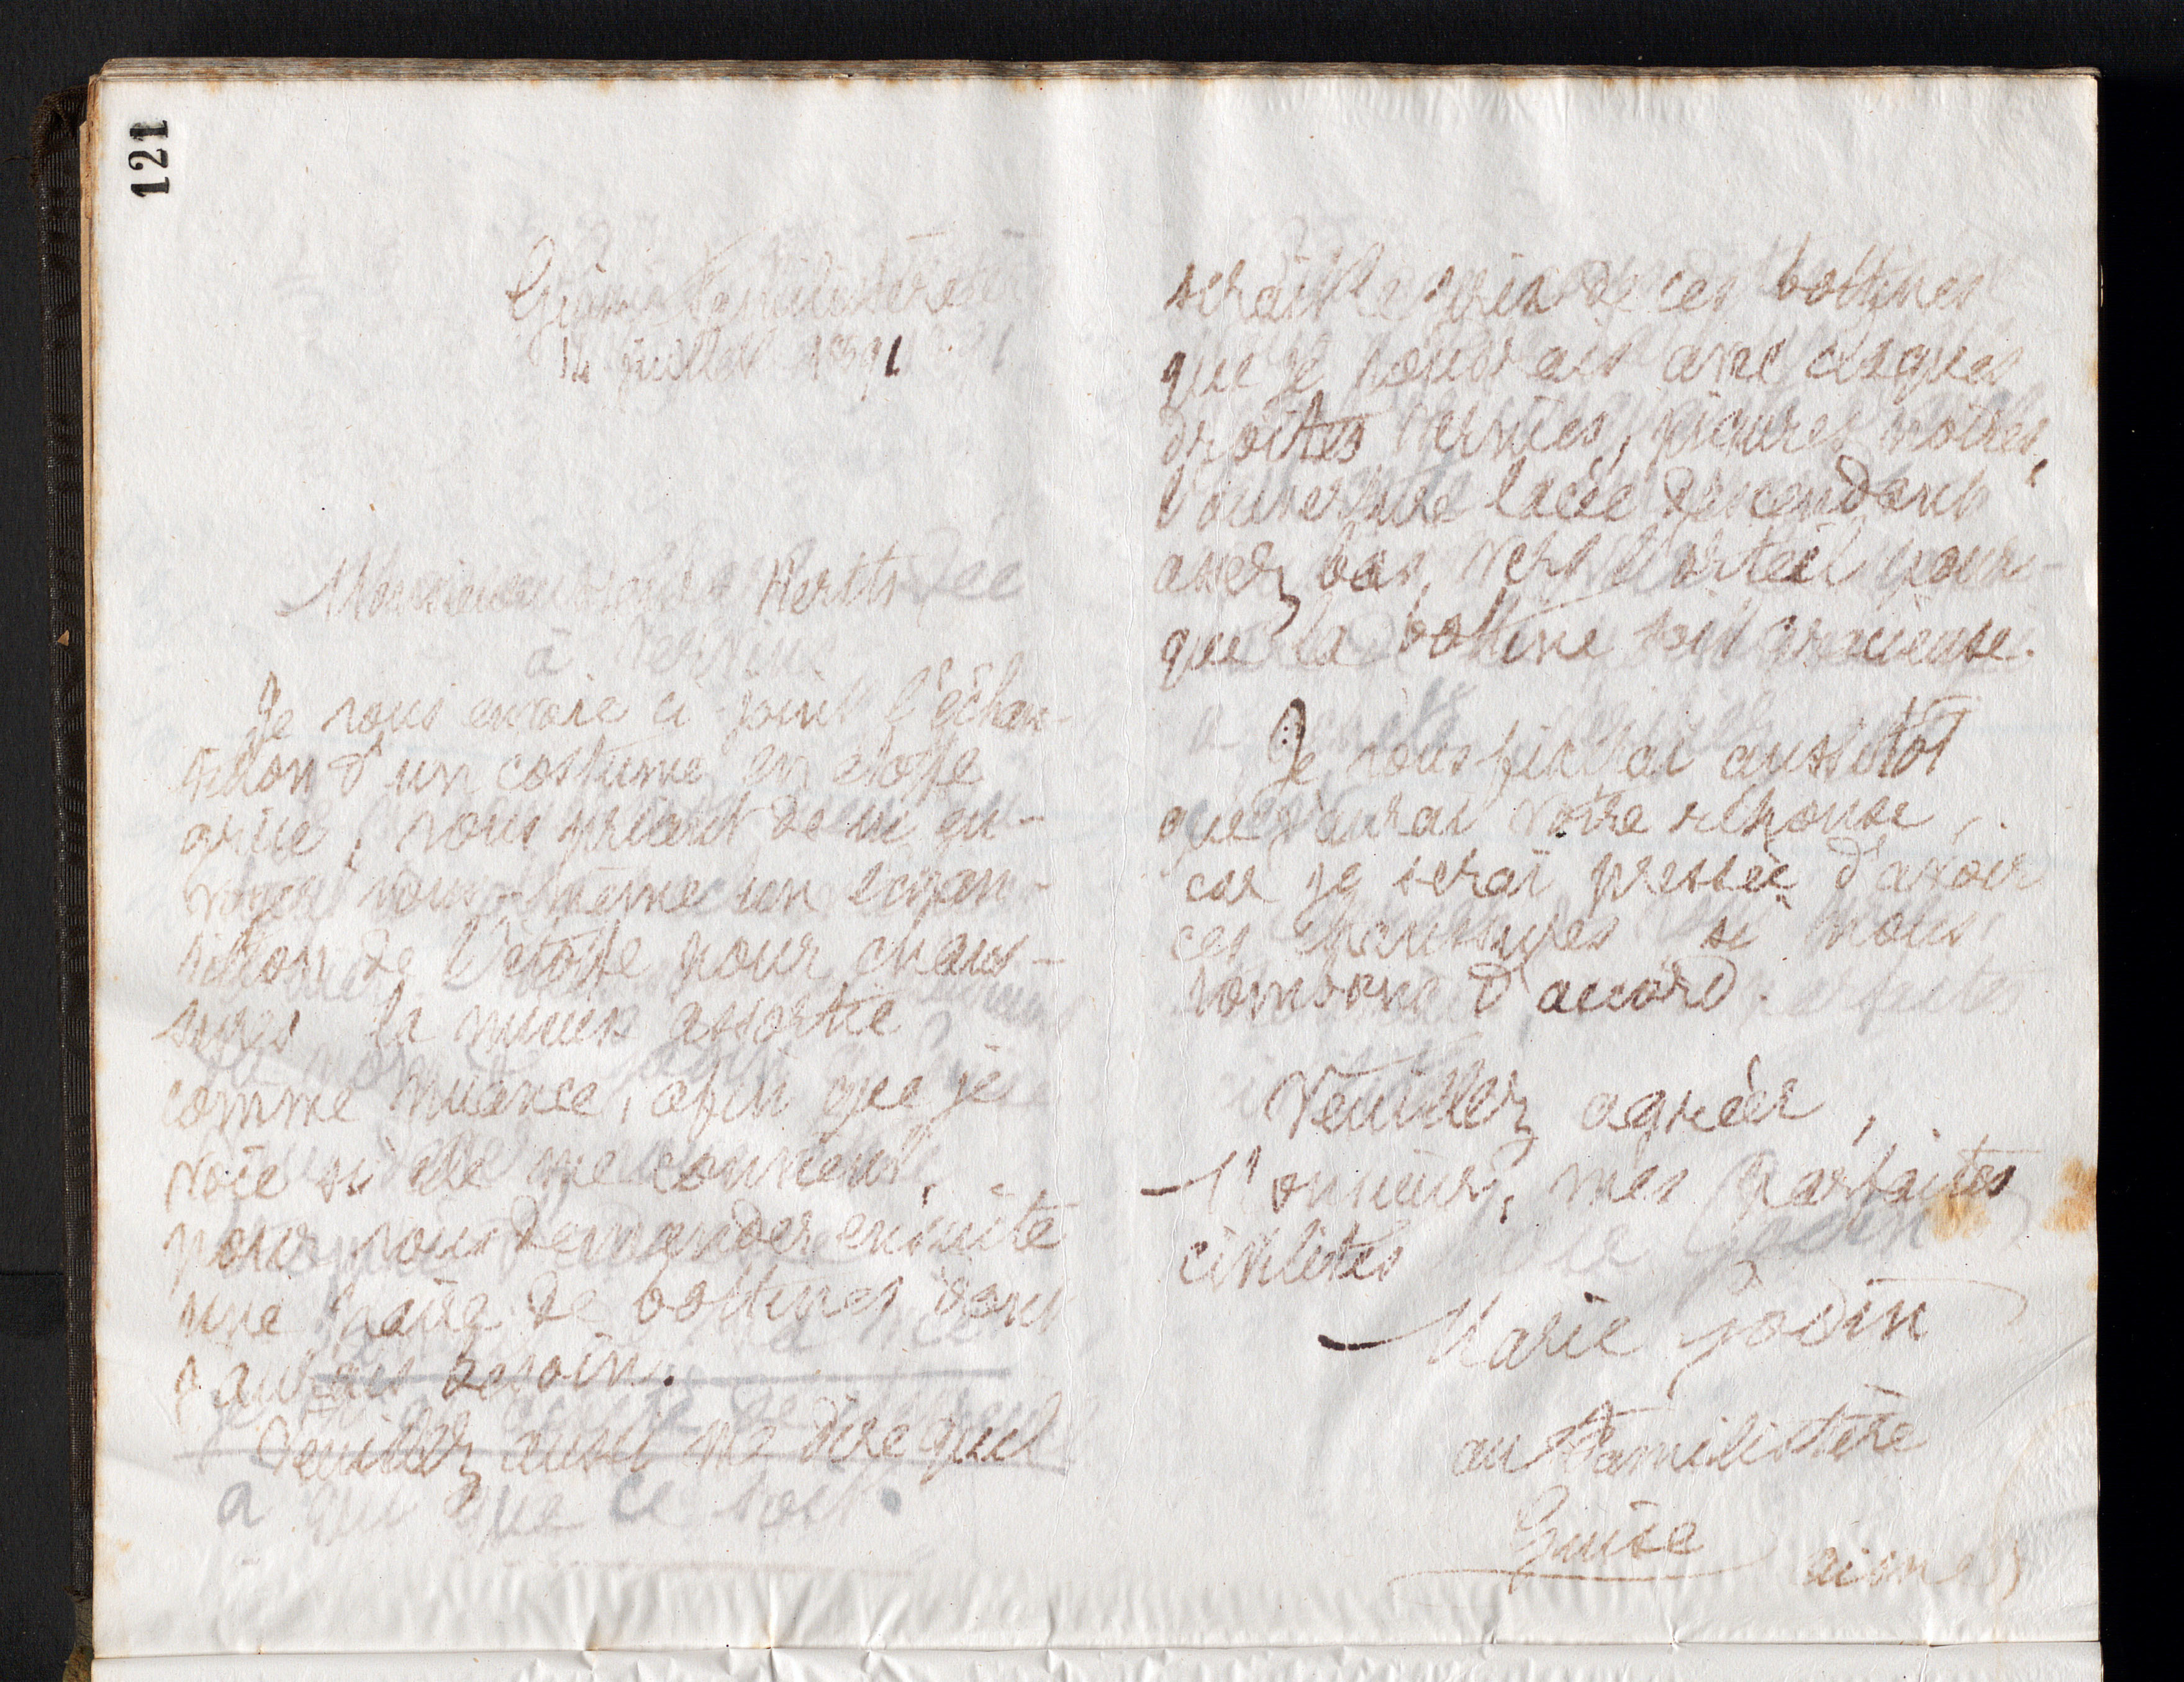 121
Guise Familistère
14 juillet 1891
Monsieur Hertts
à Vervins
Je vous envoie ci joint l'échan-
tillon d'un costume en étoffe
grise, vous priant de m'en-
voyer vous-même un échan-
tillon de l'étoffe pour chaus-
sures la mieux assortie
comme nuance, afin que je
voie si elle me convient,
pour vous demander ensuite
une paire de bottines dont
j'aurais besoin.
Veuillez aussi me dire quel
serait le prix de ces bottines
que je voudrais avec claques
droites vernies, piqures noires,
l'ouverture lacée descendant
assez bas vers l'orteil pour
que la bottine soit gracieuse.
Je vous fixerai aussitôt
que j'aurai votre réponse,
car je serai pressée d'avoir
ces chaussures si nous
tombons d'accord.
Veuillez agréer,
Monsieur, mes parfaites
civilités
Marie Godin
au Familistère
Guise aisne)